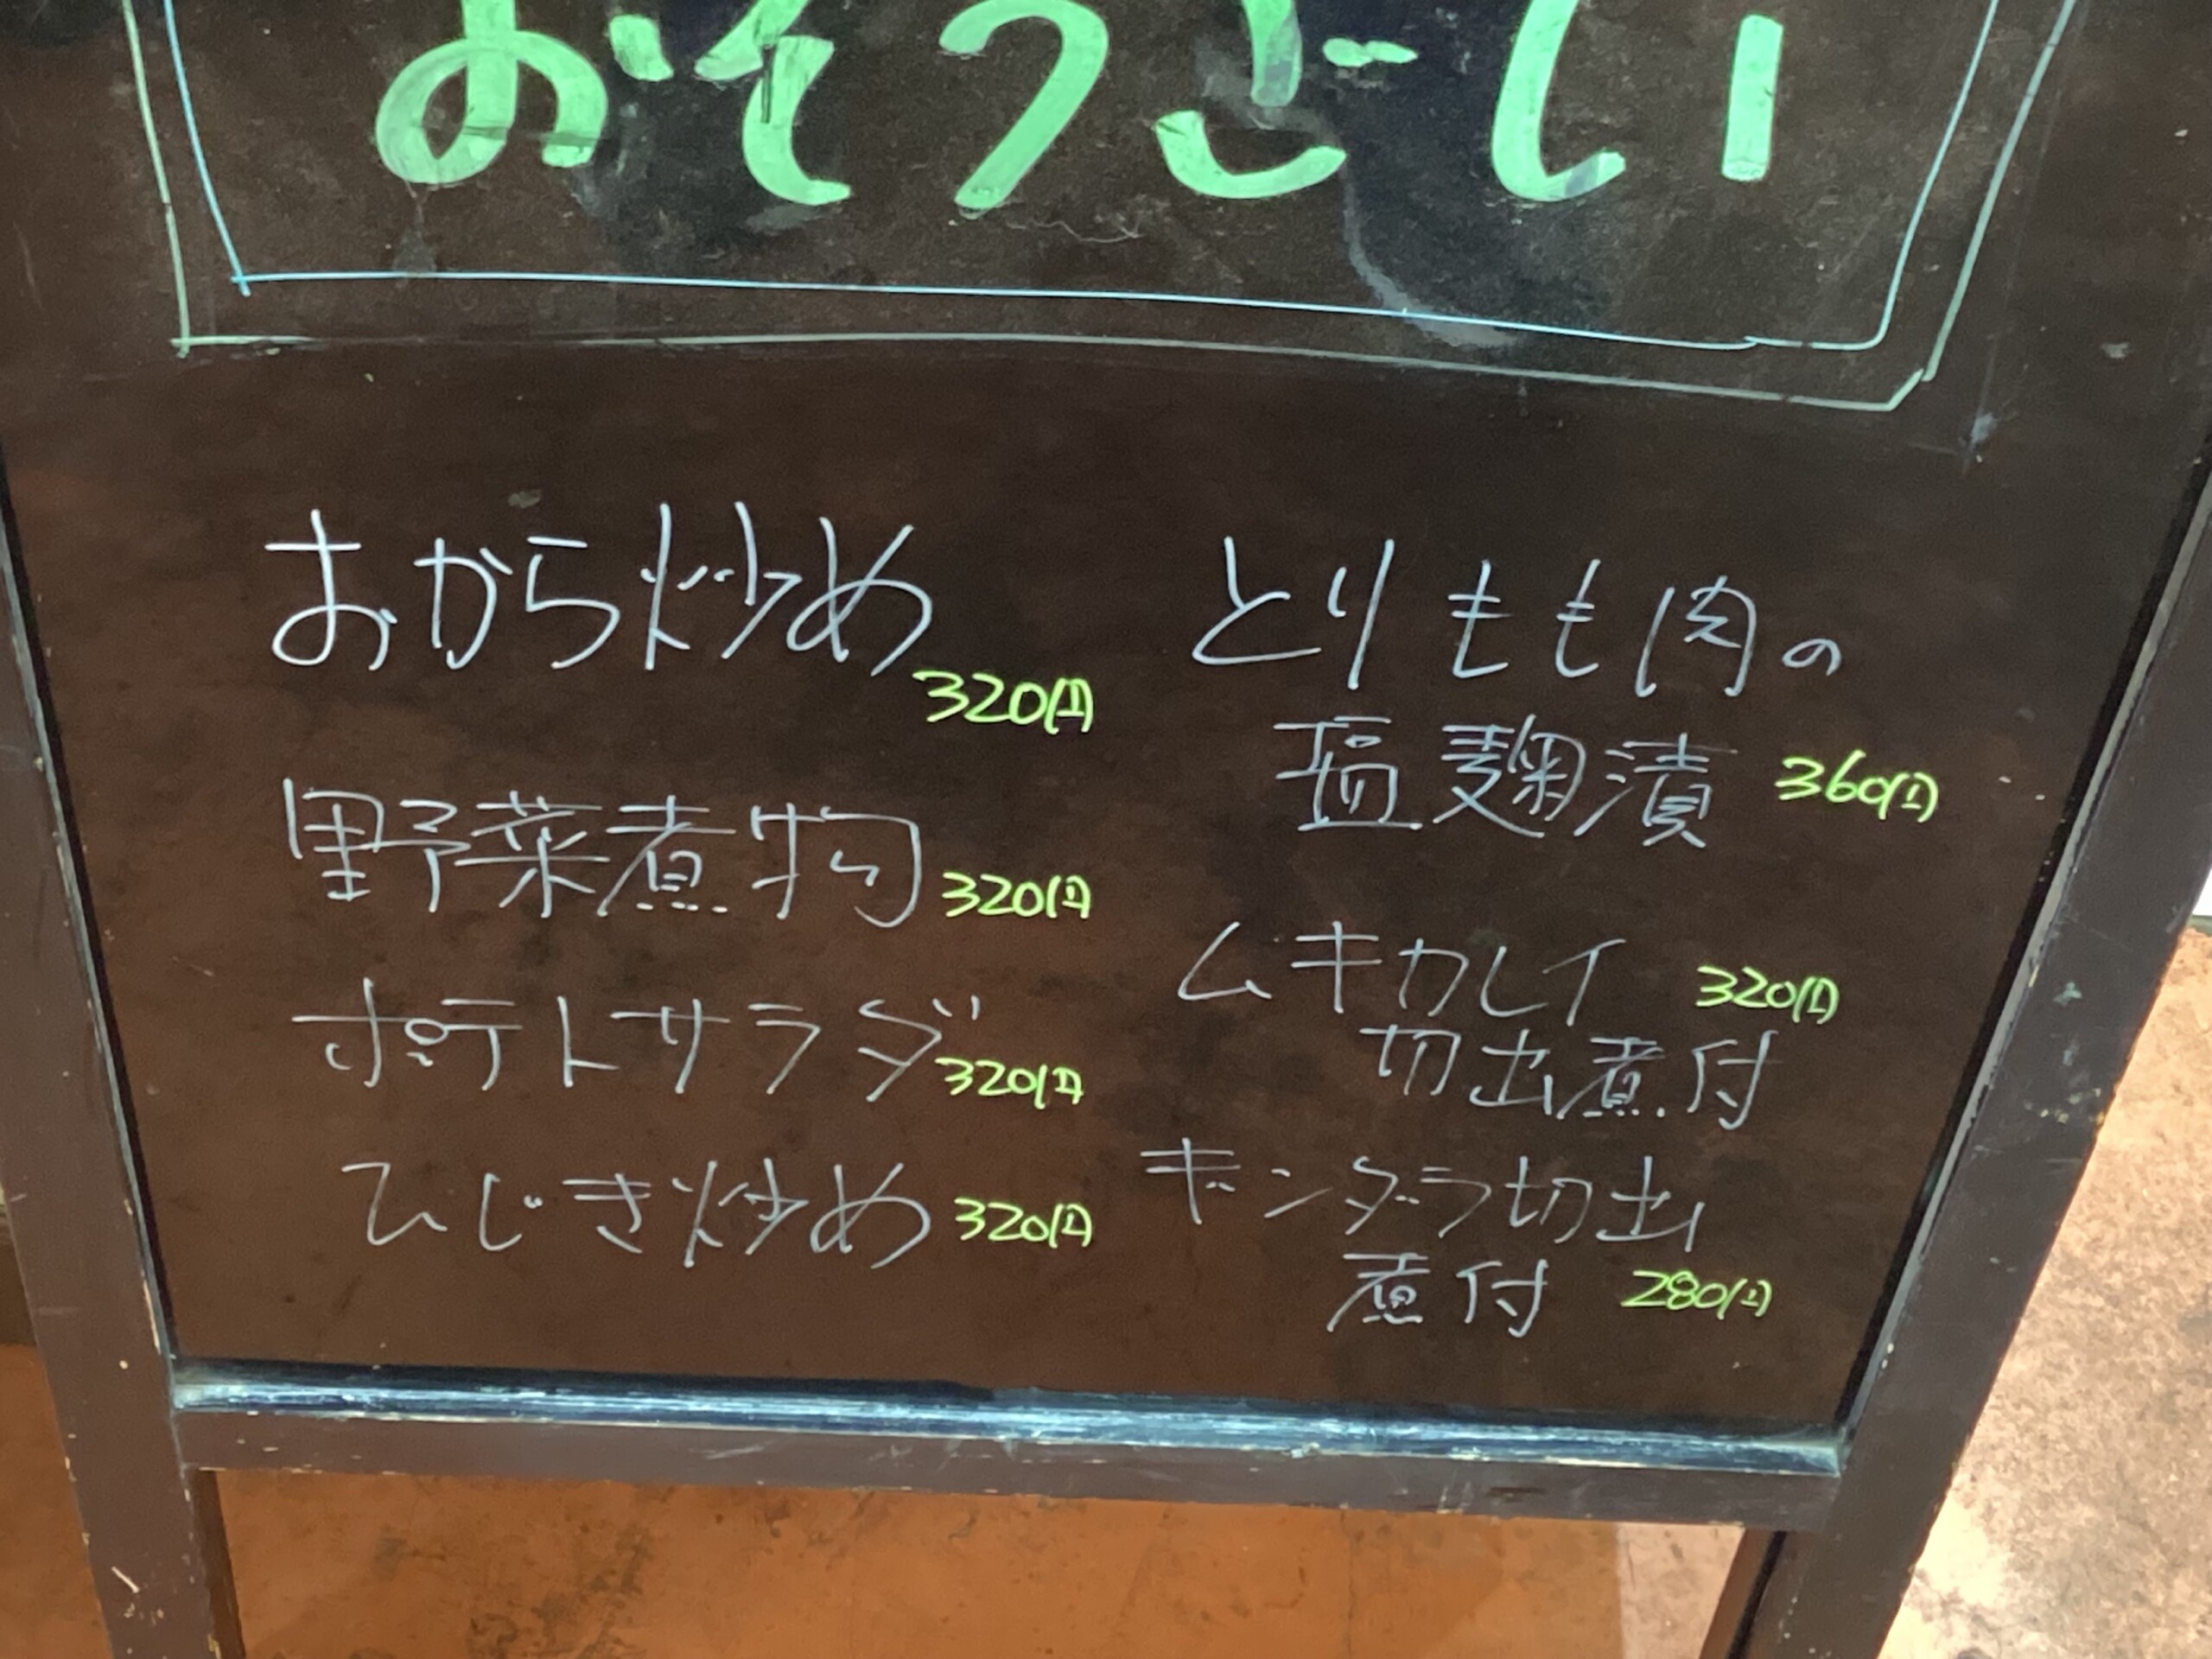 おそうざい
おから炒め
320(1)
野菜煮物
320(1)
ポテトサラダ
320(1)
ひじき炒め 320(1)
とりもも肉の
塩麹漬 360(1)
ムキカレイ 320(1)
切出煮付
ギンダラ切出
煮付 280(1)